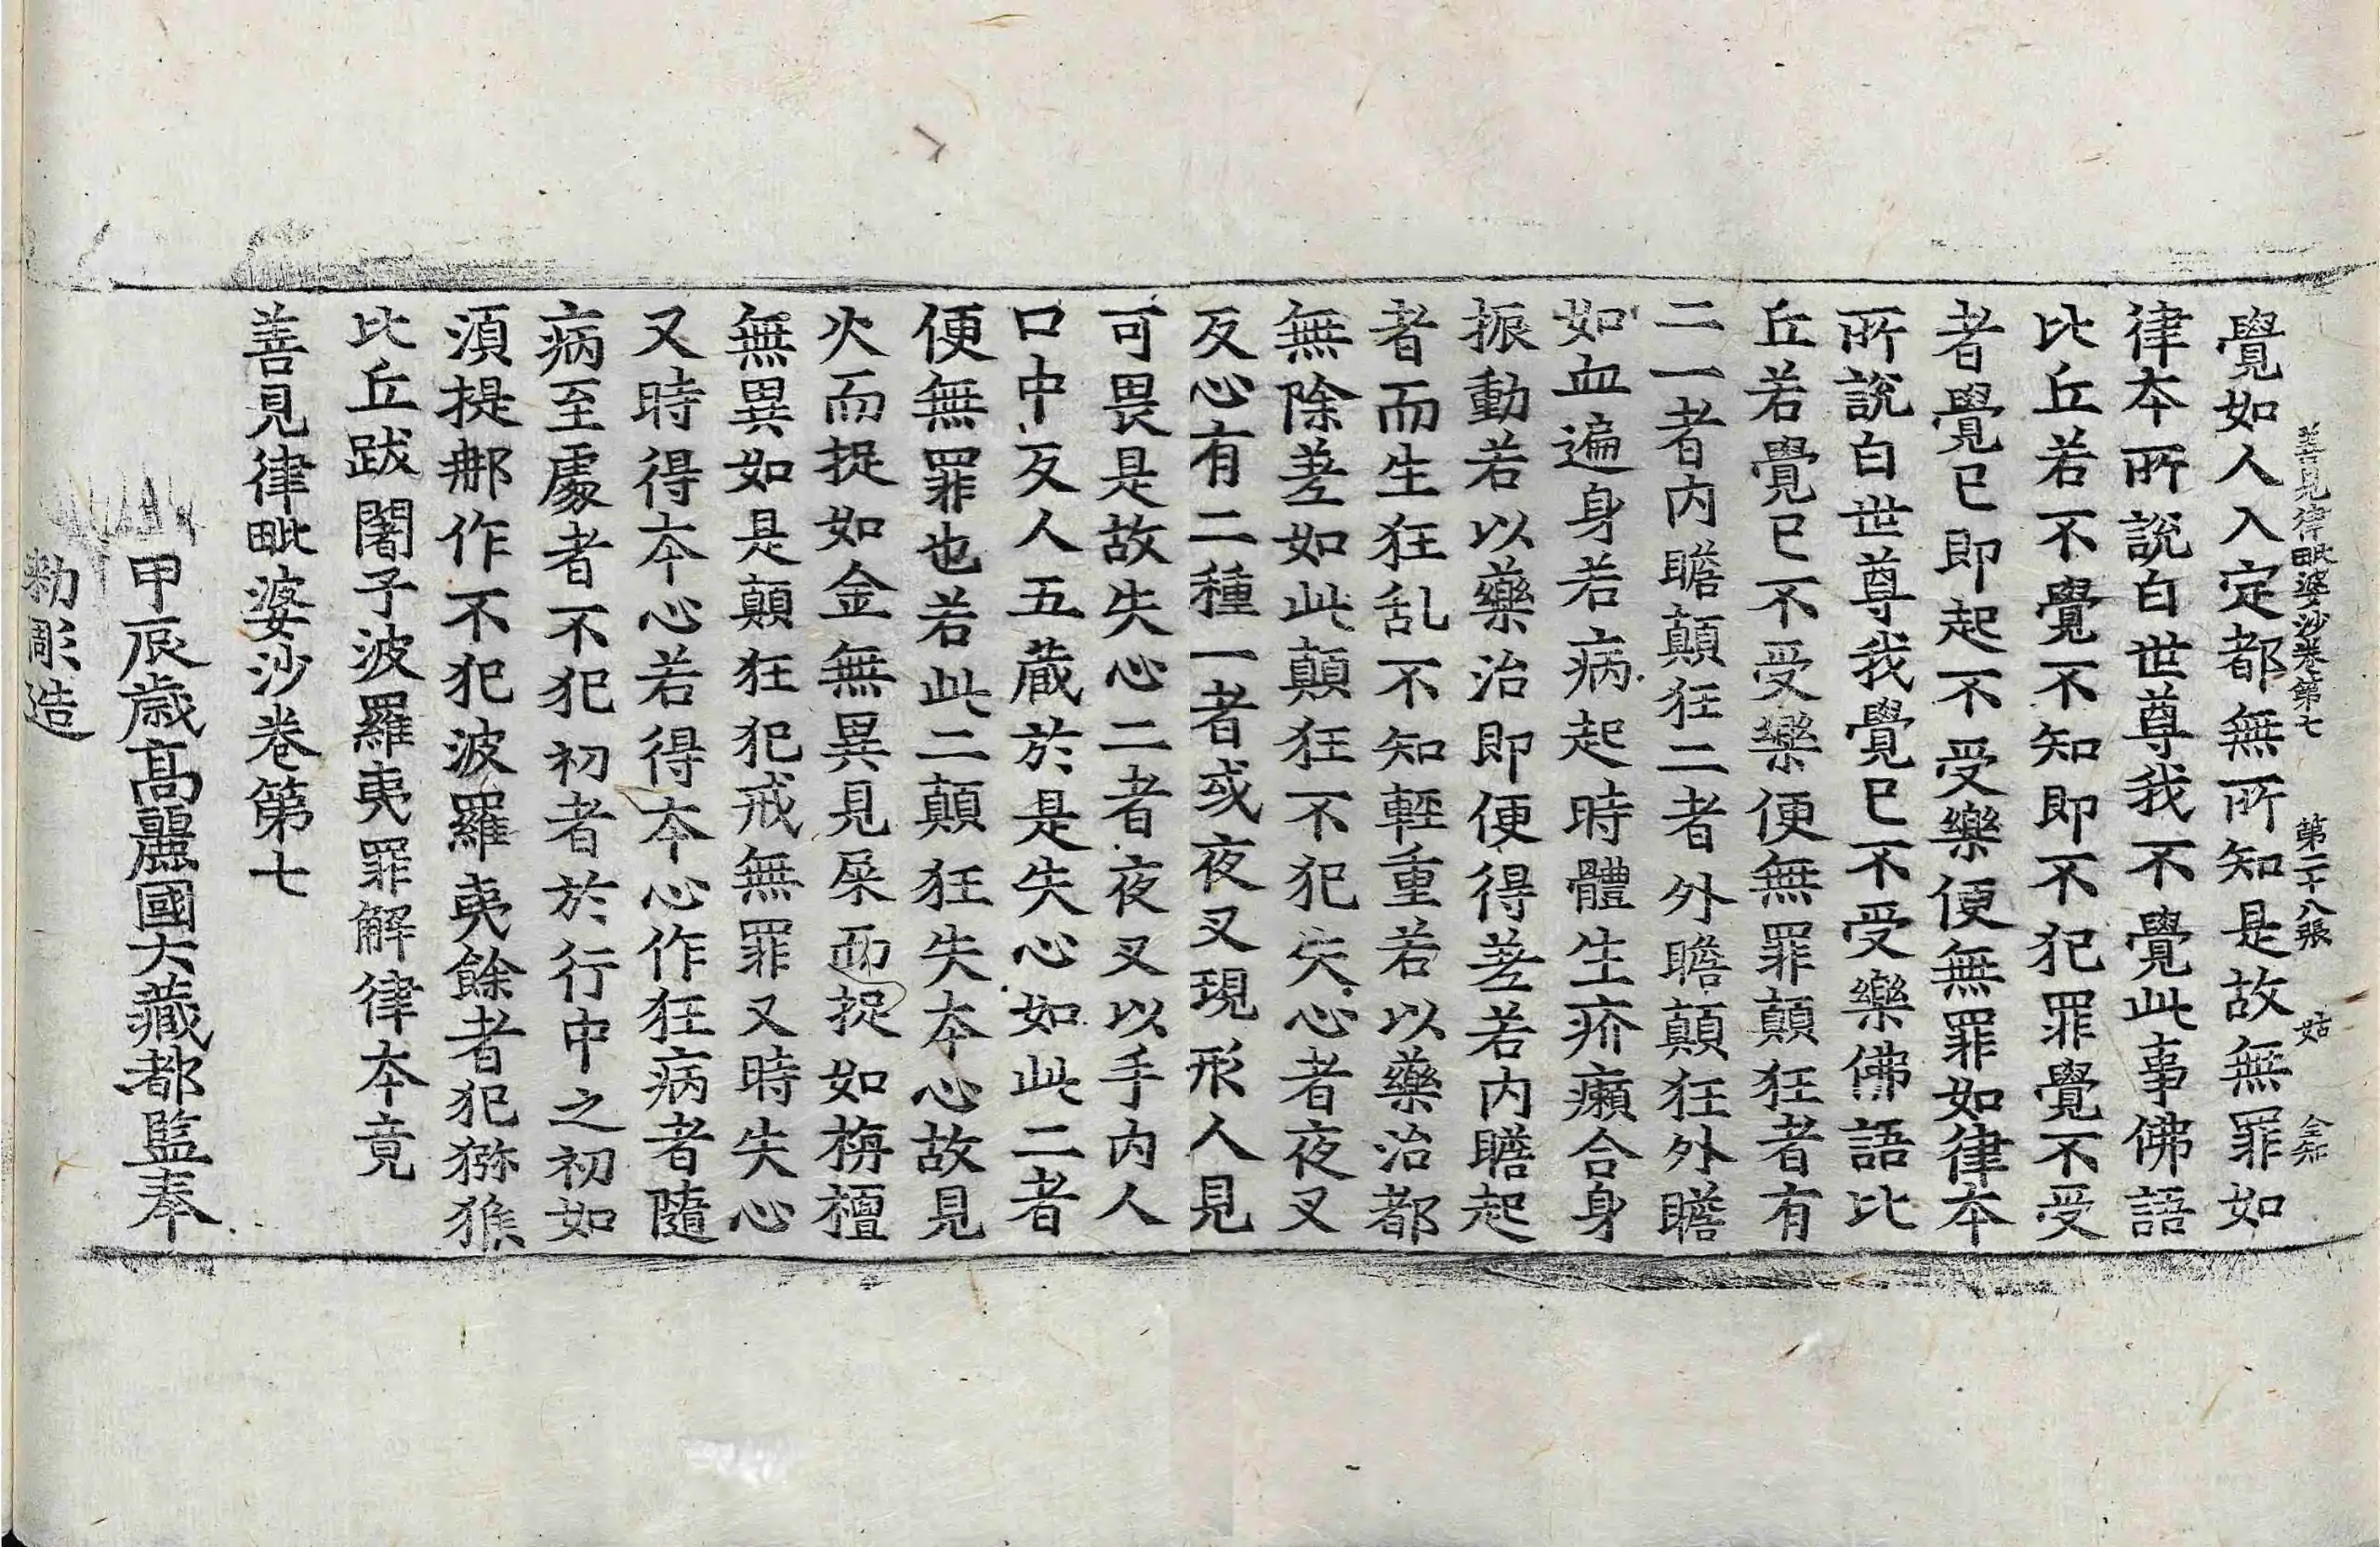 善見律毗婆沙卷第七 第二十八張 姑
覺如人入定都無所知是故無罪如
律本所說白世尊我不覺此事佛語
比丘若不覺不知即不犯罪覺不受
者覺已即起不受樂便無罪如律本
所說白世尊我覺已不受樂佛語比
丘若覺已不受樂便無罪顛狂者有
二一者內瞻顛狂二者外瞻顛狂外瞻
如血遍身若病起時體生疥癩合身
振動若以藥治即便得差若內瞻起
者而生狂乱不知輕重若以藥治都
無除差如此顛狂不犯失心者夜叉
反心有二種一者或夜叉現形人見
可畏是故失心二者夜叉以手內人
口中反人五藏於是失心如此二者
便無罪也若此二顛狂失本心故見
火而捉如金無異見屎而捉如栴檀
無異如是顛狂犯戒無罪又時失心
又時得本心若得本心作狂病者隨
病至處者不犯初者於行中之初如
須提那作不犯波羅夷餘者犯獼猴
比丘跋闍子波羅夷罪解律本竟
善見律毗婆沙卷第七
甲辰歲高麗國大藏都監奉
勑彫造